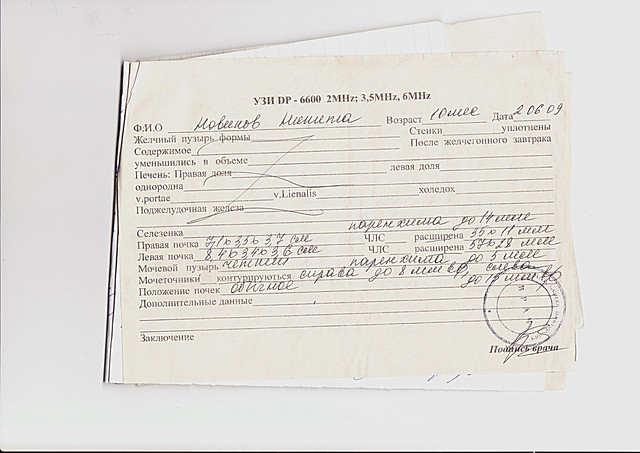 УЗИ DP - 6600 2MHz; 3,5MHz, 6MHz
Ф.И.О Новинов Никита Возраст 10 мес Дата 2 06 09
Желчный пузырь формы Стенки уплотнены
Содержимое После желчегонного завтрака
уменьшились в объеме
Печень: Правая доля левая доля
однородна
v.portae v.Lienalis холедох
Поджелудочная железа
Селезенка паренхима до 14 мм
Правая почка 7,1х3,5х3,7 см ЧЛС расширена 35х11 мм
Левая почка 8,4х3,4х3,6 см ЧЛС расширена 57х28 мм
Мочевой пузырь паренхима до 5 мм
Мочеточники контурируются справа до 8 мм слева
Положение почек обычное до 15 мм
Дополнительные данные
Заключение
Подпись врача